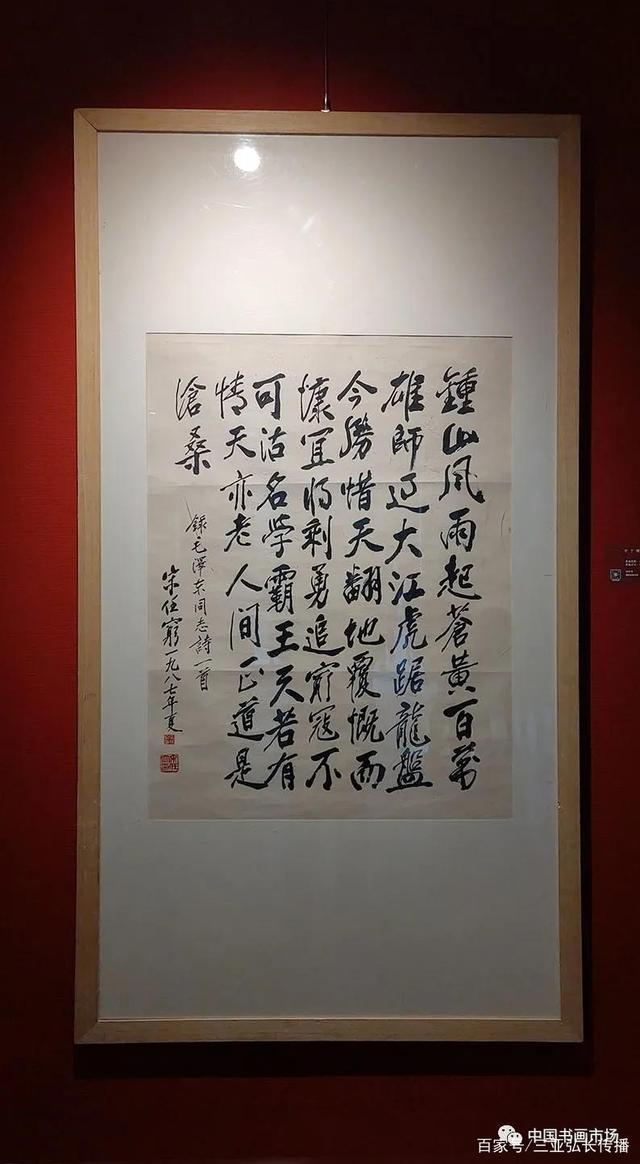 鍾山风雨起蒼黃百萬
雄師过大江虎踞龍盤
今勝惜天翻地覆慨而
慷宜将剩勇追窮寇不
可沽名学霸王天若有
情天亦老人間正道是
滄桑
録毛澤东同志詩一首
宋任窮一九八七年夏
中国书画市场
百家号/三亚弘长传播